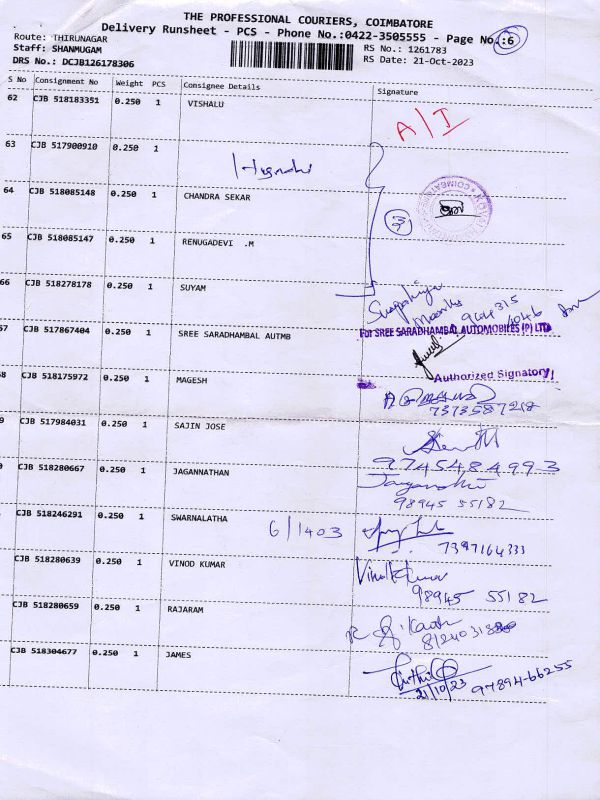 THE PROFESSIONAL COURIERS, COIMBATORE
Delivery Runsheet - PCS - Phone No.:0422-3505555 - Page No.:6
Route: THIRUNAGAR
Staff: SHANMUGAM
DRS No.: DCJB126178306
RS No.: 1261783
RS Date: 21-Oct-2023
S No Consignment No Weight PCS Consignee Details Signature
62 CJB 518183351 0.250 1 VISHALU
A/I
63 CJB 517900910 0.250 1
64 CJB 518085148 0.250 1 CHANDRA SEKAR
3
65 CJB 518085147 0.250 1 RENUGADEVI .M
66 CJB 518278178 0.250 1 SUYAM
67 CJB 517867404 0.250 1 SREE SARADHAMBAL AUTMB
For SREE SARADHAMBAL AUTOMOBILES (P) LTD
Authorized Signatory
8 CJB 518175972 0.250 1 MAGESH
7373587218
9 CJB 517984031 0.250 1 SAJIN JOSE
9745484993
0 CJB 518280667 0.250 1 JAGANNATHAN
98945 55182
CJB 518246291 0.250 1 SWARNALATHA 6/1403
7397164333
CJB 518280639 0.250 1 VINOD KUMAR
Vinothkumar
98945 55182
CJB 518280659 0.250 1 RAJARAM
CJB 518304677 0.250 1 JAMES
21/10/23 97894-66255